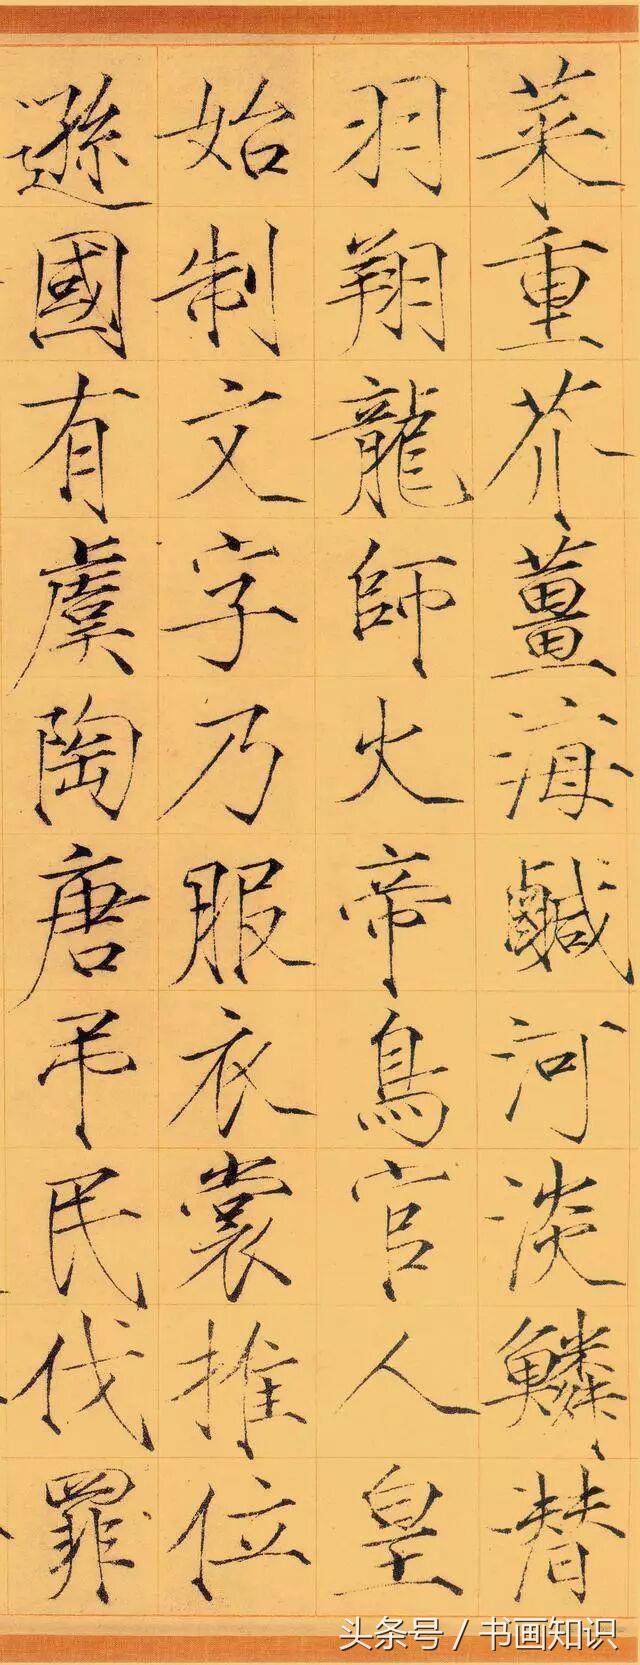 菜重芥薑海鹹河淡鱗潛
羽翔龍師火帝鳥官人皇
始制文字乃服衣裳推位
遜國有虞陶唐弔民伐罪
头条号 / 书画知识